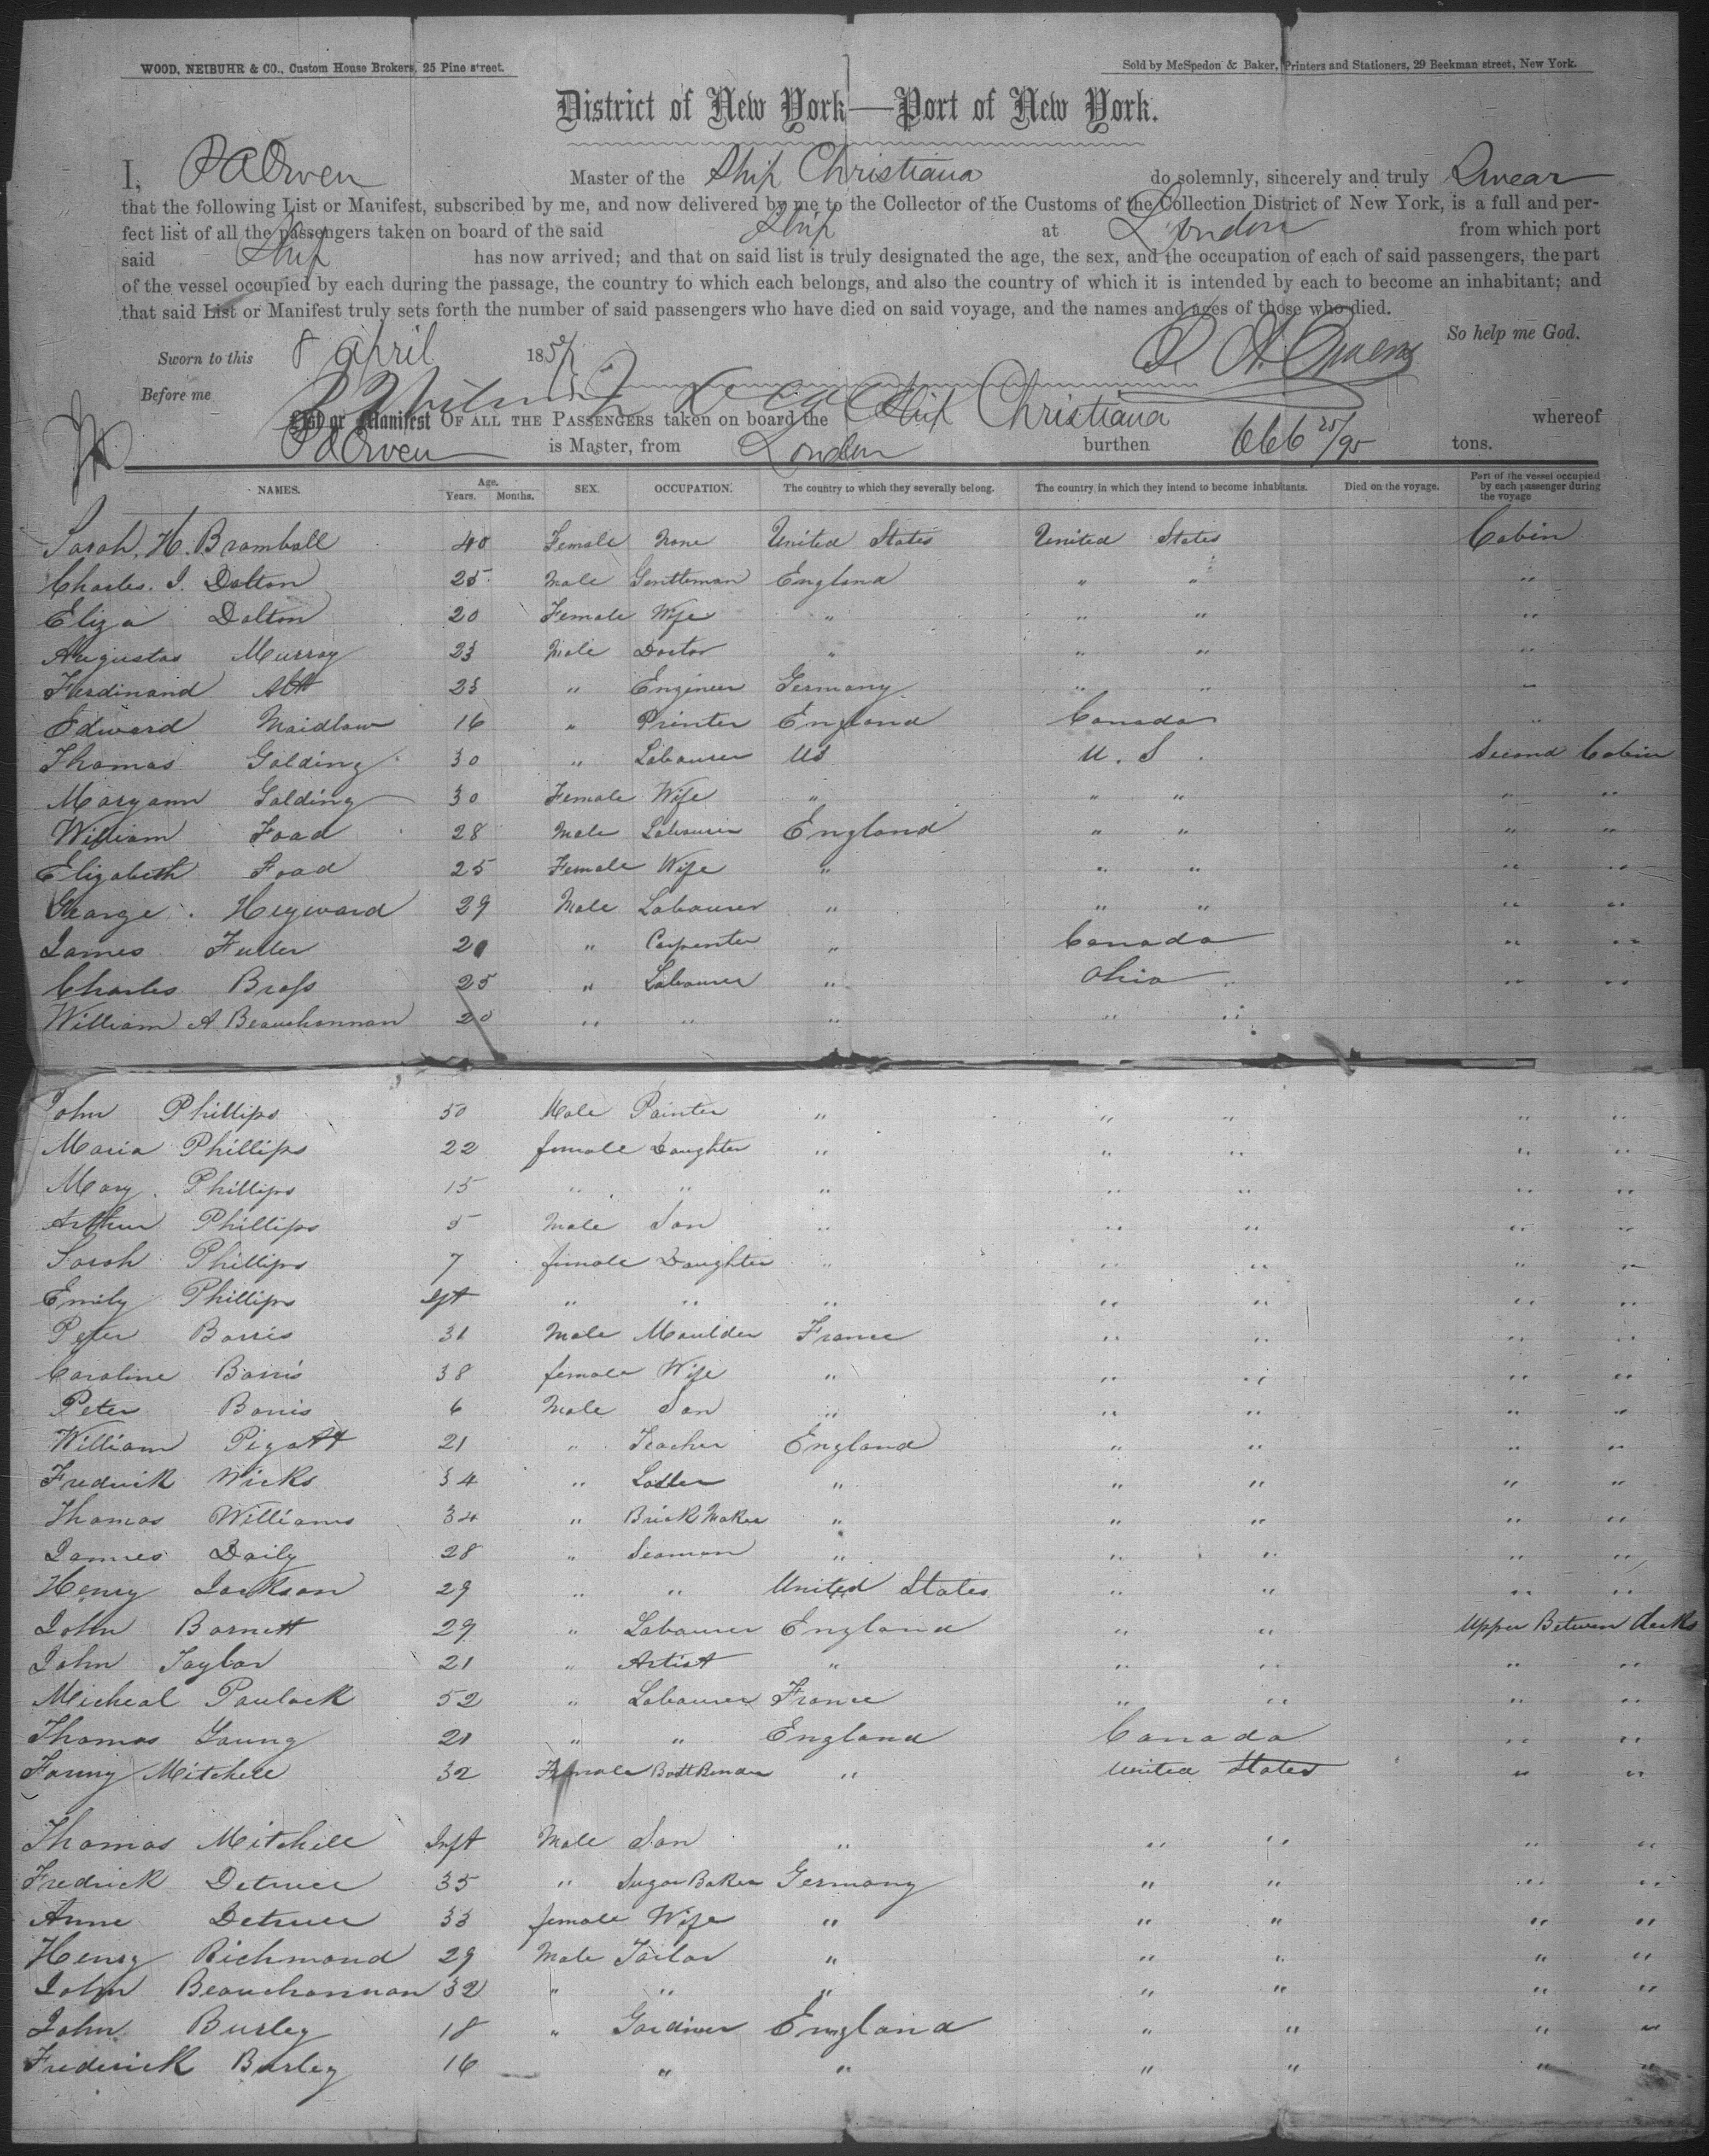 WOOD, NEIBUHR & CO., Custom House Brokers, 25 Pine street.
Sold by McSpedon & Baker, Printers and Stationers, 29 Beekman street, New York.
District of New York—Port of New York.
I, P A Owen Master of the Ship Christiana do solemnly, sincerely and truly Swear
that the following List or Manifest, subscribed by me, and now delivered by me to the Collector of the Customs of the Collection District of New York, is a full and per-
fect list of all the passengers taken on board of the said Ship at London from which port
said Ship has now arrived; and that on said list is truly designated the age, the sex, and the occupation of each of said passengers, the part
of the vessel occupied by each during the passage, the country to which each belongs, and also the country of which it is intended by each to become an inhabitant; and
that said List or Manifest truly sets forth the number of said passengers who have died on said voyage, and the names and ages of those who died.
So help me God.
Sworn to this 8 April 185
Before me
List or Manifest OF ALL THE PASSENGERS taken on board the Ship Christiana whereof
P A Owen is Master, from London burthen 666 25/95 tons.
NAMES. Age. Years. Months. SEX. OCCUPATION. The country to which they severally belong. The country in which they intend to become inhabitants. Died on the voyage. Part of the vessel occupied by each passenger during the voyage
Sarah, H. Bramhall 40 Female None United States United States Cabin
Charles. I. Dalton 25 Male Gentleman England " " "
Eliza Dalton 20 Female Wife " " " "
Augustas Murray 23 Male Doctor " " " "
Ferdinand Alt 23 " Engineer Germany " " "
Edward Maidlow 16 " Printer England Canada "
Thomas Golding 30 " Labourer US U. S. Second Cabin
Maryann Golding 30 Female Wife " " " " "
William Foad 28 Male Labourer England " " " "
Elizabeth Foad 25 Female Wife " " " " "
George Heyward 29 Male Labourer " " " " "
James Fuller 20 " Carpenter " Canada " "
Charles Brass 25 " Labourer " Ohio " "
William A Beauchannan 20 " " " " "
John Phillips 50 Male Painter " " " " "
Maria Phillips 22 female Daughter " " " " "
Mary Phillips 15 " " " " " " "
Arthur Phillips 5 Male Son " " " " "
Sarah Phillips 7 female Daughter " " " " "
Emily Phillips Ift " " " " " " "
Peter Barris 31 Male Moulder France " " " "
Caroline Barris 38 female Wife " " " " "
Peter Barris 6 Male Son " " " " "
William Pigott 21 " Teacher England " " " "
Fredrick Wicks 34 " " " " " "
Thomas Williams 34 " Brick Maker " " " " "
Jannes Daily 28 " Seaman " " " " "
Henry Jackson 29 " " United States " " " "
John Barnett 29 " Labourer England " " Upper Between decks
John Taylor 21 " Artist " " " " "
Micheal Paulack 52 " Labourer France " " " "
Thomas Young 21 " " England Canada " "
Fanny Mitchell 32 Female " United States " "
Thomas Mitchell Inft Male Son " " " " "
Fredrick Detmer 35 " Sugar Baker Germany " " " "
Anne Detmer 33 female Wife " " " " "
Henry Richmond 29 Male Tailor " " " " "
John Beauchannan 32 " " " " " " "
John Burley 18 " Gardiner England " " " "
Frederick Burley 16 " " " " " "